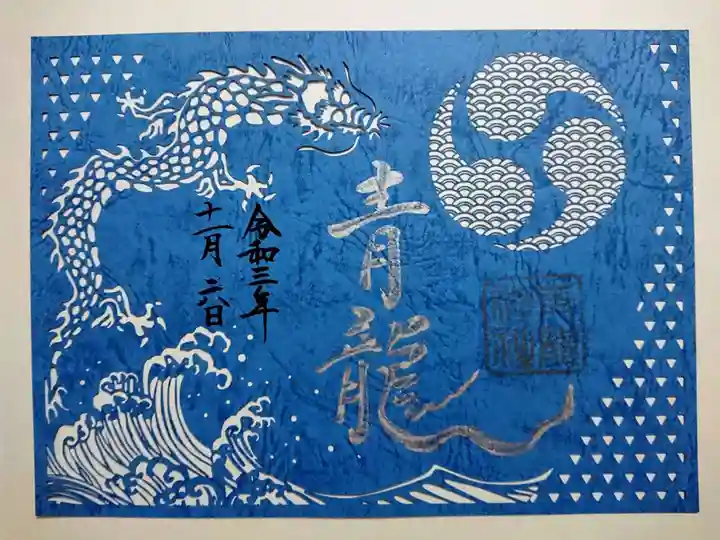 青龍
令和三年
十一月二八日